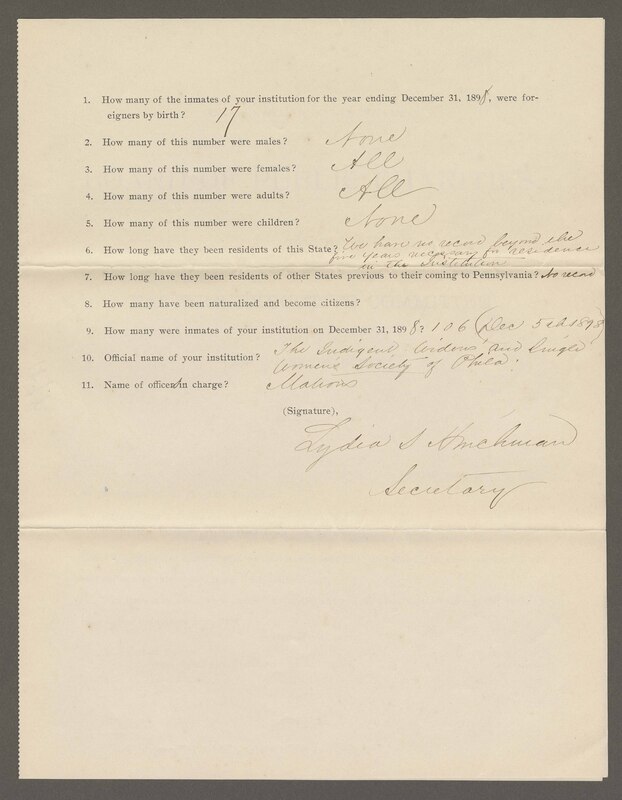 1. How many of the inmates of your institution for the year ending December 31, 1898, were for-
eigners by birth? 17
2. How many of this number were males? None
3. How many of this number were females? All
4. How many of this number were adults? All
5. How many of this number were children? None
6. How long have they been residents of this State? We have no record beyond the
five years necessary for residence
in the Institution
7. How long have they been residents of other States previous to their coming to Pennsylvania? No record
8. How many have been naturalized and become citizens?
9. How many were inmates of your institution on December 31, 1898? 106 (Dec 5th 1898)
10. Official name of your institution? The Indigent Widows' and Single
Women's Society of Phila:
11. Name of officer in charge? Matrons
(Signature),
Lydia S Hinchman
Secretary